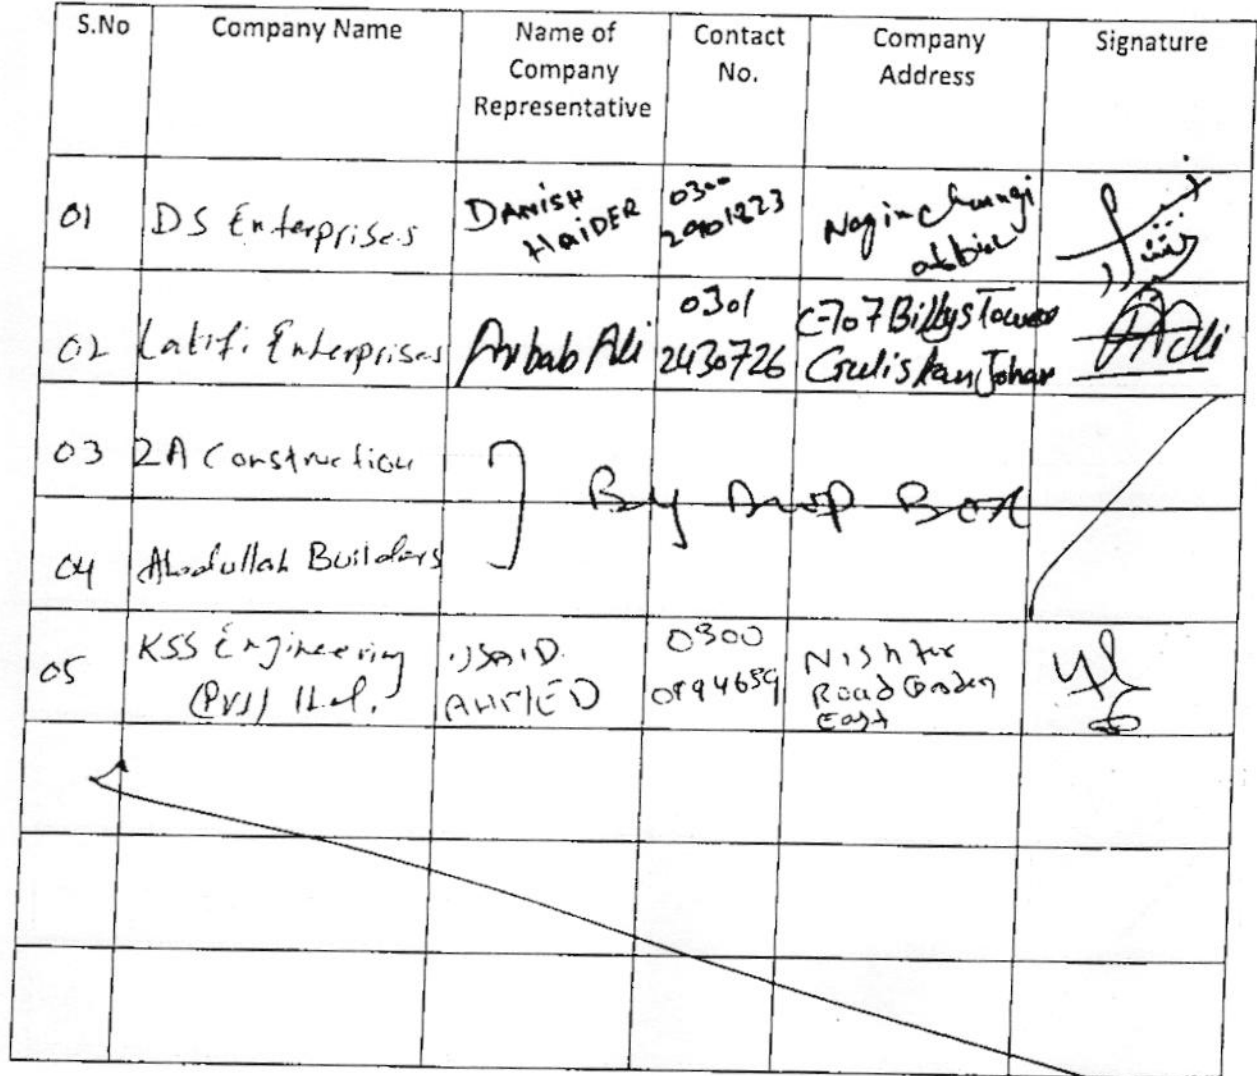 S.No Company Name Name of Company Representative Contact No. Company Address Signature
01 DS Enterprises DANiSH HaiDER 0300 Nagin Chungi
02 Latifi Enterprises Arbab Ali 0301 2430726 C-707 Billys Tower Gulistan Johar
03 2A Construction
By Drop Box
04 Abdullah Builders
05 KSS Engineering AHMED 0300 Nishter Road Garden East